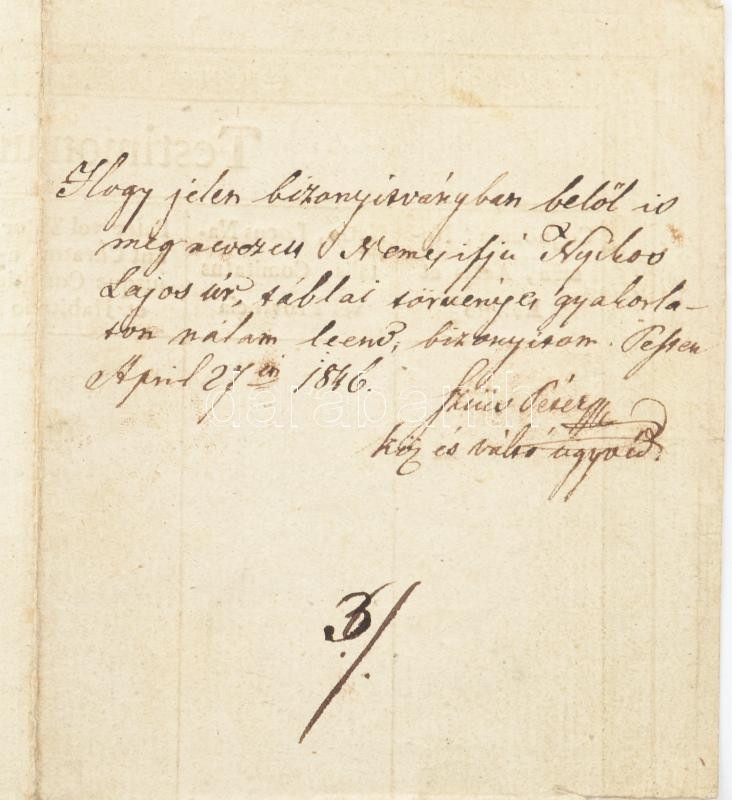 Hogy jelen bizonyitványban belől is
meg nevezett Nemes ifjú Nyikos
Lajos úr, táblai törvényes gyakorla-
ton nálam leend, bizonyitom. Pesten
April 27én 1846.
Szűcs Péter
köz és váltó ügyvéd.
3/.
darabanth